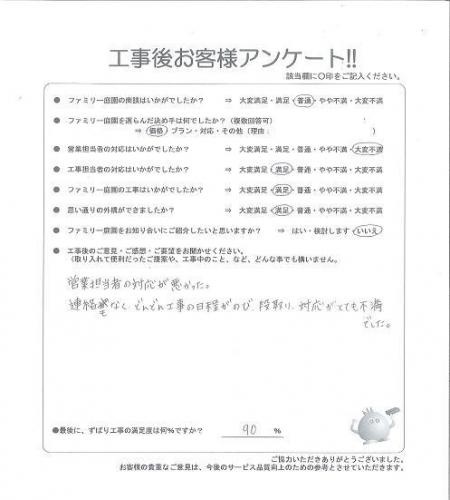 工事後お客様アンケート!!
該当欄に○印をご記入ください。
● ファミリー庭園の商談はいかがでしたか? ⇒ 大変満足・満足・普通・やや不満・大変不満
● ファミリー庭園を選らんだ決め手は何でしたか?(複数回答可)
⇒ 価格・プラン・対応・その他(理由: )
● 営業担当者の対応はいかがでしたか? ⇒ 大変満足・満足・普通・やや不満・大変不満
● 工事担当者の対応はいかがでしたか? ⇒ 大変満足・満足・普通・やや不満・大変不満
● ファミリー庭園の工事はいかがでしたか? ⇒ 大変満足・満足・普通・やや不満・大変不満
● 思い通りの外構ができましたか? ⇒ 大変満足・満足・普通・やや不満・大変不満
● ファミリー庭園をお知り合いにご紹介したいと思いますか? ⇒ はい・検討します・いいえ
● 工事後のご意見・ご感想・ご要望をお聞かせください。
(取り入れて便利だったご提案や、工事中のこと、など、どんな事でも構いません。
営業担当者の対応が悪かった。
連絡もなく、どんどん工事の日程がのび、段取り、対応がとても不満
でした。
●最後に、ずばり工事の満足度は何%ですか? 90 %
ご協力いただきありがとうございました。
お客様の貴重なご意見は、今後のサービス品質向上のための参考とさせていただきます。